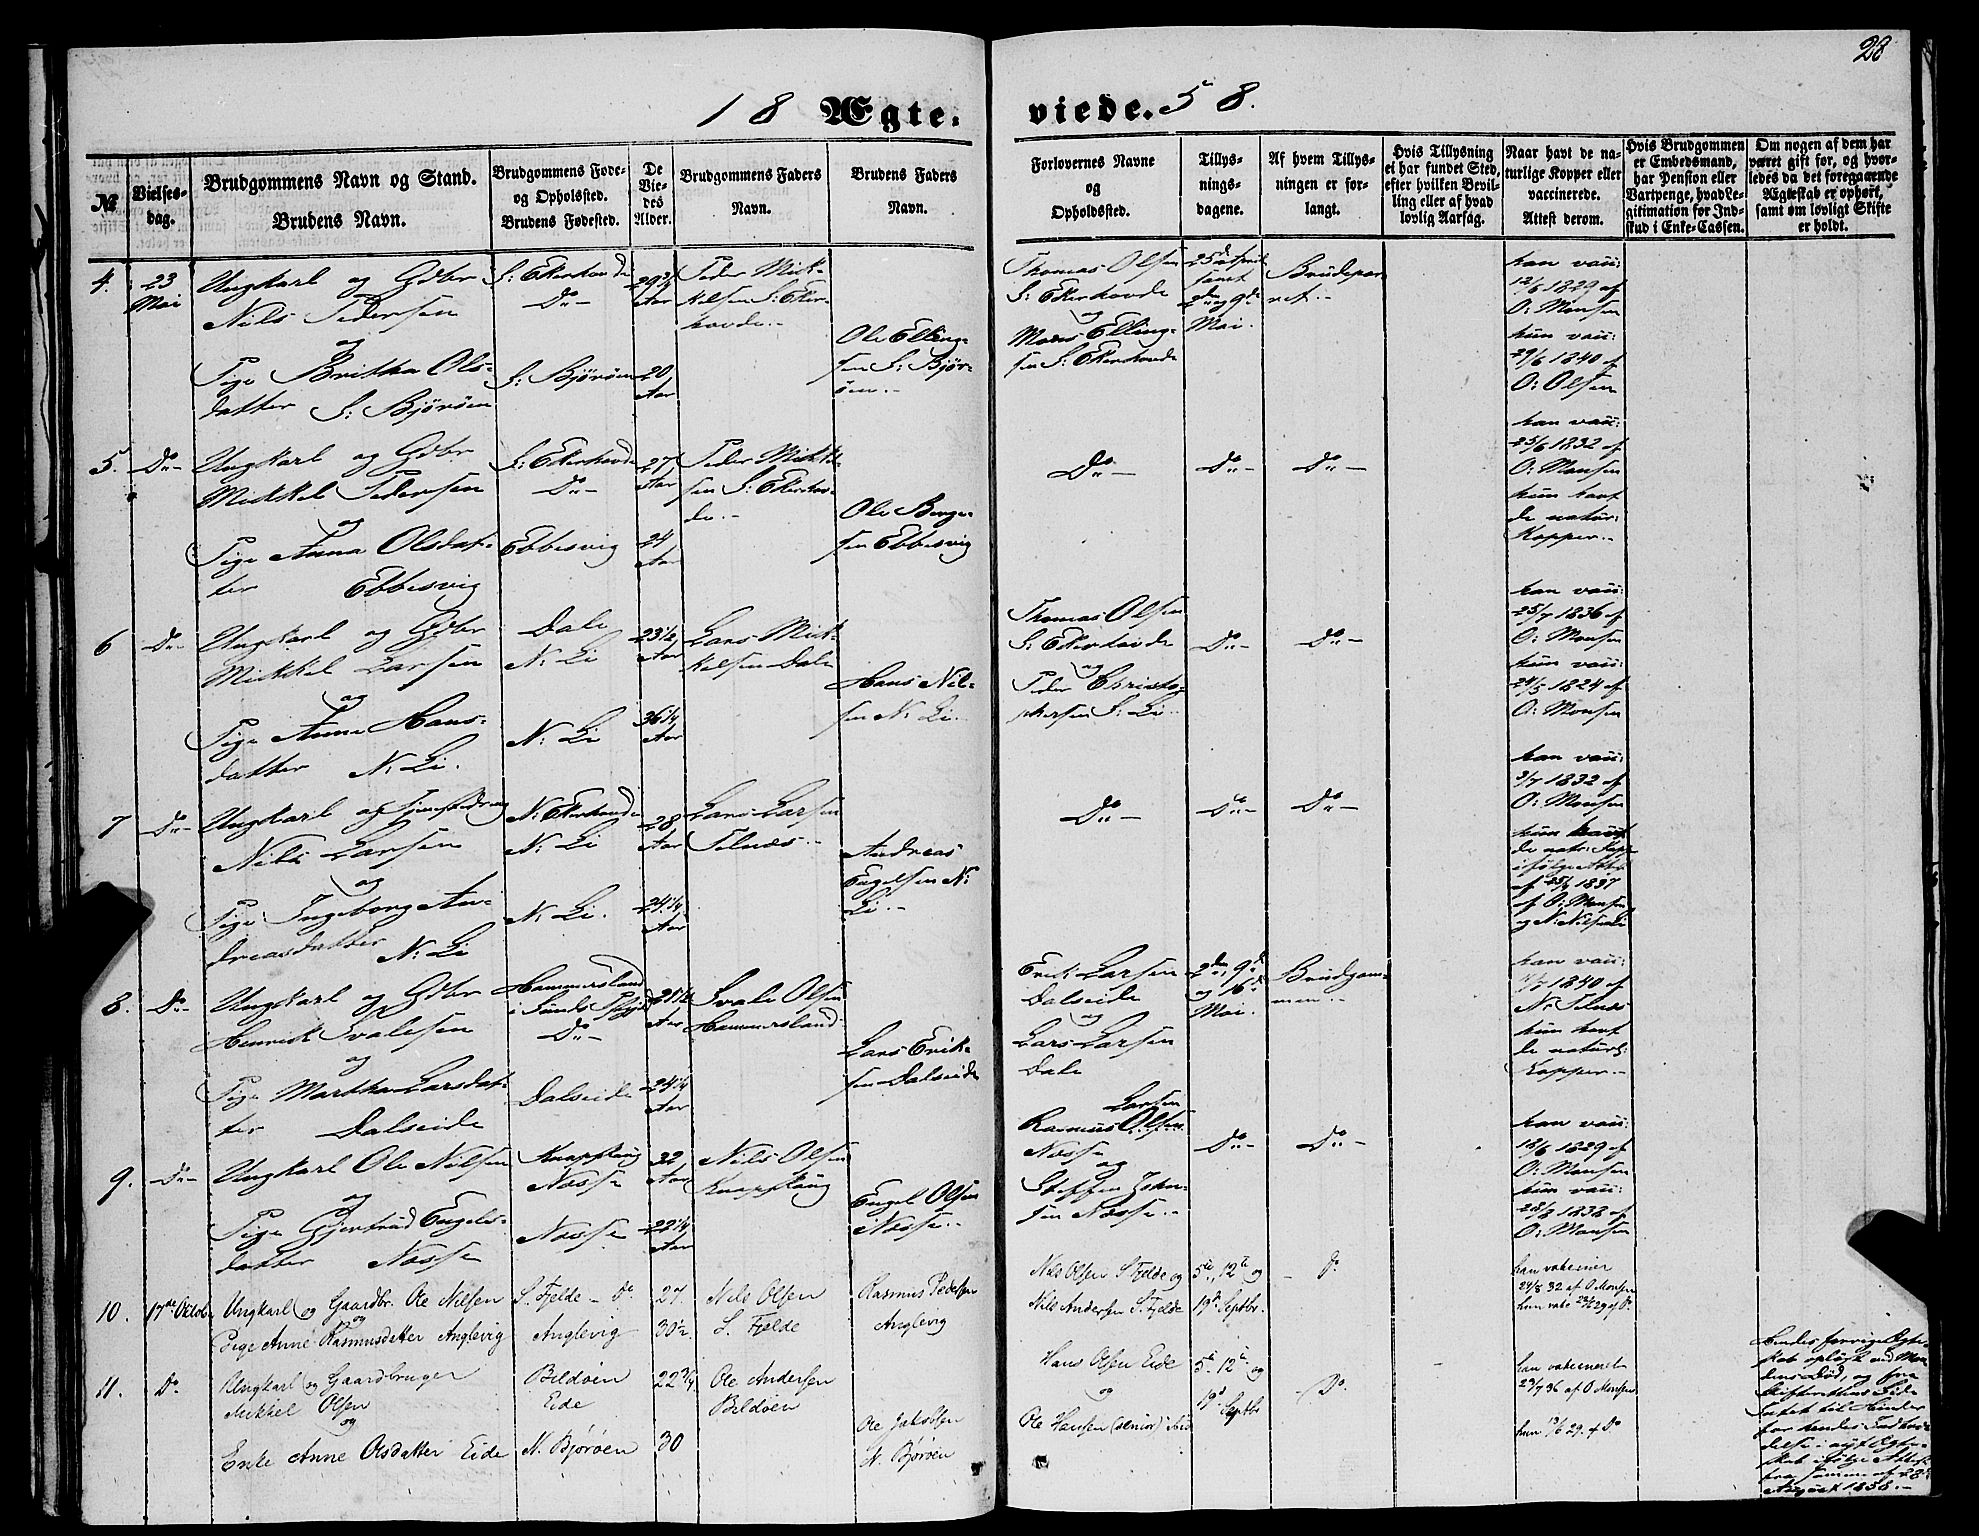 28
18 Ægte-viede. 58.
№
Vielses-
dag.
Brudgommens Navn og Stand.
Brudens Navn.
Brudgommens Føde-
og Opholssted.
Brudens Fødested.
De
Vie-
des
Alder.
Brudgommens Faders
Navn.
Brudens Faders
Navn.
Forlovernes Navne
og
Opholdssted.
Tillys-
nings-
dagene.
Af hvem Tillys-
ningen er for-
langt.
Hvis Tillysning
ei har fundet Sted,
efter hvilken Bevil-
ling eller af hvad
lovlig Aarsag.
Naar havt de na-
turlige Kopper eller
vaccinerede.
Attest derom.
Hvis Brudgommen
er Embedsmand,
har Pension eller
Vartpenge, hvad Le-
gitimation for Ind-
skud i Enke-Cassen.
Om nogen af dem har
været gift før, og hvor-
ledes da det foregaaende
Ægteskab er ophørt,
samt om lovligt Skifte
er holdt.
4.
23
Mai
Ungkarl og Gdbr
Nils Pedersen
og
Pige Britha Ols-
datter S: Bjørøen
S: Ekerhovde
Do-
S: Bjørøen
29 3/4
Aar
20
Aar
Peder Mik-
kelsen S: Eker-
hovde.-
Ole Elling-
sen S: Bjør-
øen.-
Thomas Olsen
S: Ekerhovde
og
Mons Elling-
sen S: Ekerhovde
25de April
samt
2den og 9de
Mai.
Brudepar-
ret.-
han vacc:
12/6 1829 af
O: Monsen
hun vacc:
29/6 1840 af
O: Olsen
5.
Do-
Ungkarl og Gdbr
Mikkel Pedersen
og
Pige Anna Olsdat-
ter Ebbesvig
S: Ekerhovde
Do-
Ebbesvig
27
Aar
24
Aar
Peder Mikkel-
sen S: Ekerhov-
de.-
Ole Børge-
sen Ebbesvig
Do-
Do-
Do-
han vacc:
25/6 1832 af
O: Monsen
hun havt
de natur:
Kopper.-
6
Do-
Ungkarl og Gdbr
Mikkel Larsen
og
Pige Anna Hans-
datter N: Li.
Dale
N: Li
N: Li
23 1/2
Aar
36 1/4
Aar
Lars Mik-
kelsen Dale
Hans Nil-
sen N: Li.
Thomas Olsen
S: Ekerhovde
og
Peder Christo-
phersen S: Li.
Do-
Do-
han vacc:
25/7 1836 af
O: Monsen
hun vacc:
24/5 1824 af
O: Monsen
7
Do-
Ungkarl og
Nils Larsen
og
Pige Ingeborg An-
dreasdatter N: Li
N: Ekerhovde
N: Li
N: Li.
28
Aar
24 1/4
Aar
Lars Larsen
Telnæs.-
Andreas
Engelsen N:
Li.-
Do-
Do-
Do-
han vacc:
3/7 1832 af
O: Monsen
hun havt
de natr: Kop:
ifølge Attest
af 25/6 1837
af O: Monsen
og N: Nilsen Li
8.
Do-
Ungkarl og Gdbr
Henrik Svalesen
og
Pige Martha Larsdat-
ter Dalseide
Hammersland
i Sunds Pgjd
Do-
Dalseide
24 1/4
Aar
Svale Olsen
Hammersland
Lars Erik-
sen Dalseide
Erik Larsen
Dalseide
og
Lars Larsen
Dale
2den, 9de
og 16de
Mai.
Brudgom-
men.-
han vacc:
1840 af
N: Telnæs
hun havt
de naturl:
Kopper.-
9.
Do-
Ungkarl Ole Nilsen
og
Pige Gjertrud Engels-
datter Næsse
Knapskug
Næsse
Næsse
32
Aar
22 1/4
Aar
Nils Olsen
Knapskug
Engel Olsen
Næsse.-
Larsen
Rasmus Olsen
Næsse
og
Steffen John-
sen Næsse.-
Do-
Do-
han vacc:
12/6 1829 af
O: Monsen
hun vacc:
28/8 1838 af
O: Monsen
10.
17de Octob.
Ungkarl og Gaardbr. Ole Nilsen
og
Pige Anne Rasmusdatter Anglevig
S. Fjelde - Do
Anglevig
27.
30 1/2.
Nils Olsen
S. Fjelde
Rasmus Pedersen
Anglevig
Nils Olsen S Fjelde og
Nils Andersen S. Fjelde
5te, 12te og
19de Septbr.
- Do.
han vakciner
24/8 32 af O Monsen
hun vakc 22/6 29 af Do.
11.
Do.
Ungkarl og Gaardbruger
Mikkel Olsen
og
Enke Anne Olsdatter Eide
Bildøen
Eide
N. Bjørøen
22 3/4
30
Ole Andersen
Bildøen
Ole Jakobsen
N. Bjørøen
Hans Olsen Eide
og
Ole Hansen (senior) ibid
5te 12te og
19de Septbr
- Do.
han vakcineret
23/7 36 af O Monsen
hun 13/6 29. af Do
Hendes forrige Ægte-
skab opløst ved Man-
dens Død, og fra
Skifterettens Side
Intet til Hinder
for hendes Indtræ-
delse i nyt Ægte-
skab ifølge Attest
fra samme af 28de
August 1858.-